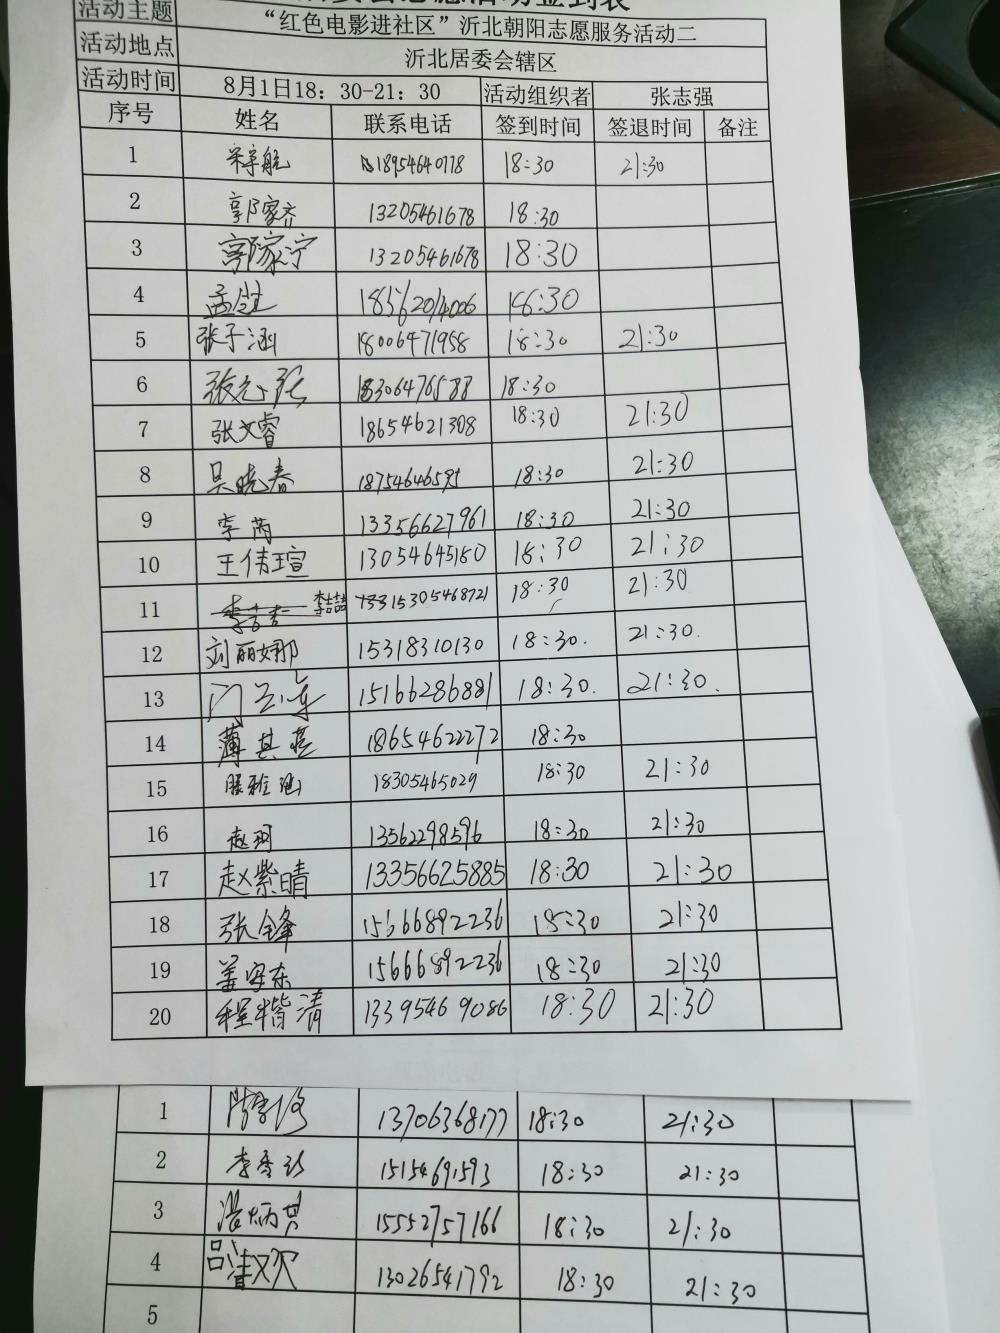 活动主题 “红色电影进社区”沂北朝阳志愿服务活动二
活动地点 沂北居委会辖区
活动时间 8月1日18：30-21：30 活动组织者 张志强
序号 姓名 联系电话 签到时间 签退时间 备注
1 宋宇航 18954640778 18:30 21:30
2 郭家齐 13205461678 18:30
3 郭家宁 13205461678 18:30
4 18:30
5 张子涵 18006471958 18:30 21:30
6 张志强 18306476588 18:30
7 张文睿 18654621308 18:30 21:30
8 吴晓春 18754646595 18:30 21:30
9 李芮 13356627961 18:30 21:30
10 王倩瑄 13054645180 18:30 21:30
11 李喆喆 15305468721 18:30 21:30
12 刘丽娜 15318310130 18:30. 21:30.
13 15166286881 18:30. 21:30.
14 薄其蕊 18654622272 18:30
15 18305465029 18:30 21:30
16 赵珂 13562298596 18:30 21:30
17 赵紫晴 13356625885 18:30 21:30
18 张锋 15666892236 18:30 21:30
19 姜安东 15666892236 18:30 21:30
20 程楷清 13395469086 18:30 21:30
1 13706368177 18:30 21:30
2 李香珍 15154691593 18:30 21:30
3 15552757166 18:30 21:30
4 吕清欢 13026541792 18:30 21:30
5